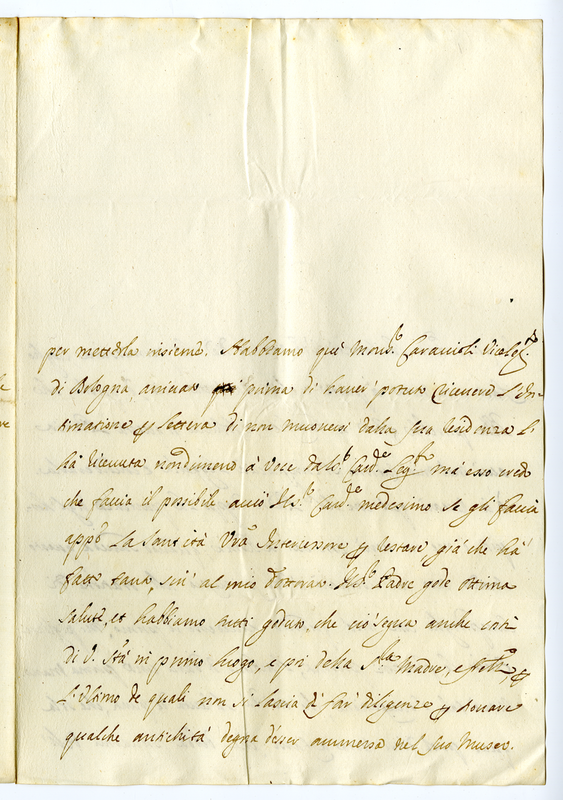 per metterla insieme. Habbiamo quì Mons.r Caraccioli ViceLeg.o
di Bologna, arrivato prima di haver potuto ricevere l'In-
timatione per lettera di non muoversi dalla sua residenza l'
hà ricevuta nondimeno à voce dal S.r Card.e Seg.o ma esso credo
che faccia il possibile acciò Card.e medesimo se gli faccia
app.o la Santità Vra Intercessore, per restare, già che hà
fatto tanto, sin' al mio dottorato. Padre gode ottima
salute, et habbiamo tutti goduto, che ciò segua anche costì
di V. Stà in primo luogo, e poi della Madre, e
l'ultimo de quali non si lascia di far diligenze per trovare
qualche antichità degna d'esser ammessa nel suo Museo.